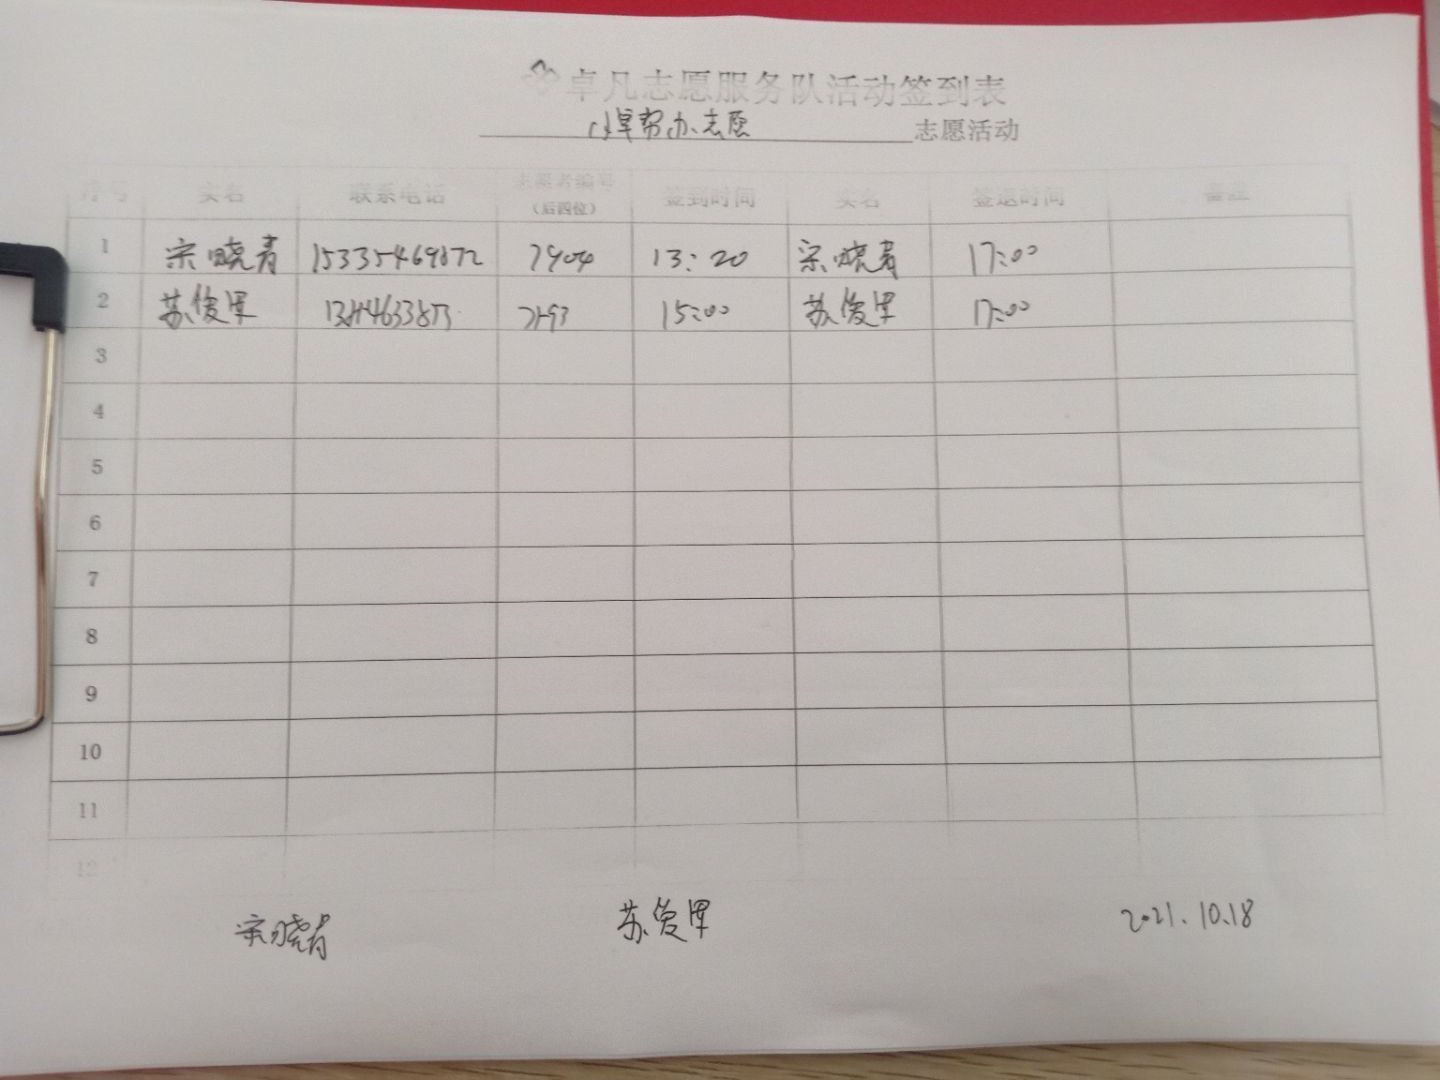 卓凡志愿服务队活动签到表
小卓帮办志愿 志愿活动
序号 实名 联系电话 志愿者编号 签到时间 实名 签退时间 备注
（后四位）
1 宋晓青 15335469872 7904 13:20 宋晓青 17:00
2 苏俊 15:00 苏俊 17:00
3
4
5
6
7
8
9
10
11
12
宋晓青 苏俊 2021.10.18